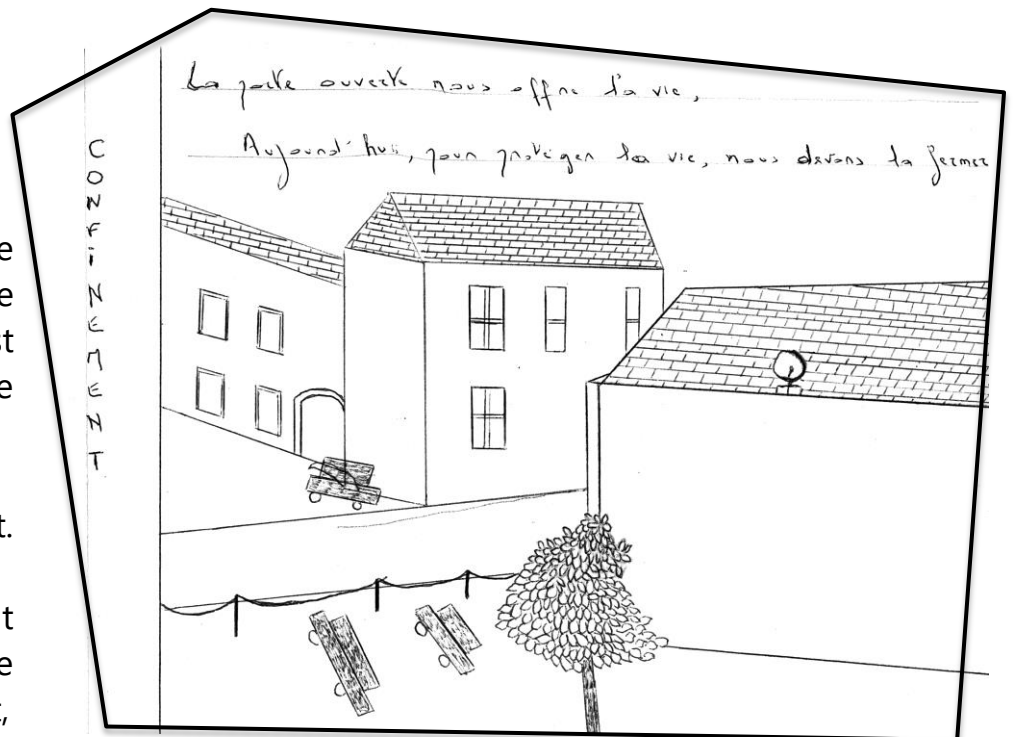 La porte ouverte nous offre la vie,
Aujourd'hui, pour protéger la vie, nous devons la fermer
CONFINEMENT
e
e
st
e
t.
t
e
,